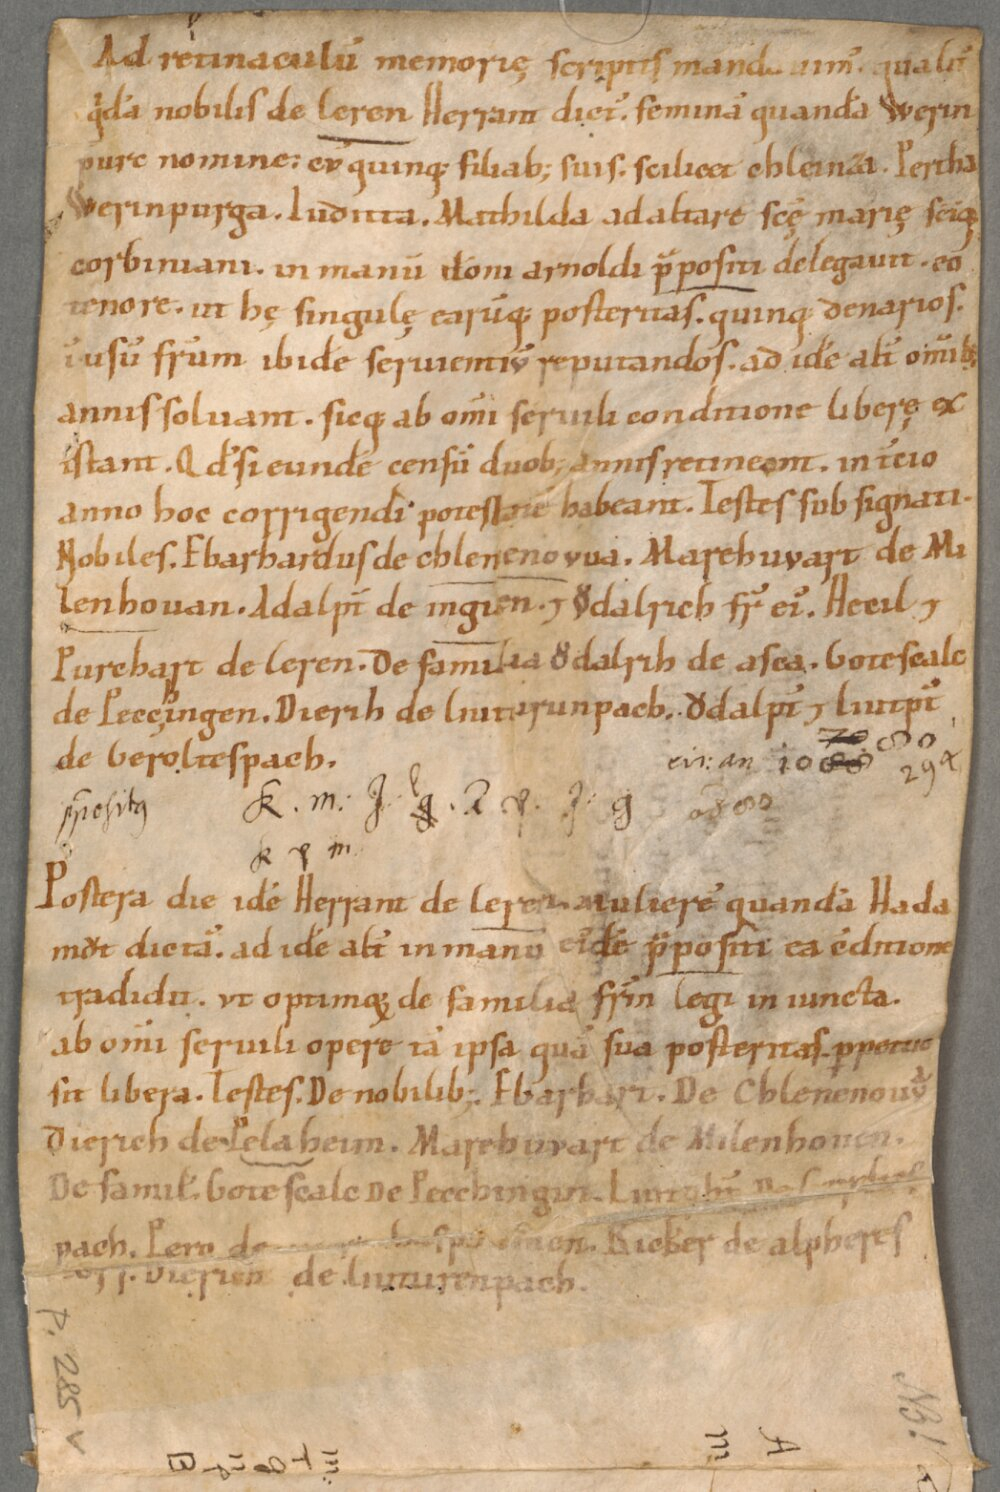 Ad retinaculū memorię scriptis mandauim᷒. qualit᷒
qd̄ā nobilis de leren Herrant dict᷒. feminā quandā Werin
purc nomine; cū quinq; filiab; suis. scilicet chleinza. Pertha
Werinpurga. Iuditta. Mathilda ad altare scę̄ marię sciq;
corbiniani. in manū dom̄ arnoldi p̄positi delegauit. eo
tenore. ut hę singulę earūq; posteritas. quinq; denarios.
ī usū fr̄um ibidē seruientiū reputandos. ad idē alt̄ om̄ib;
annis soluant. sicq; ab om̄i seruili conditione liberę ex
istant. Qd̄ si eundē censū duob; annis retineant. in t̄cio
anno hoc corrigendi potestatē habeant. Testes subsignati.
Nobiles. Ebarhardus de chlenenovua. Marchuvart de Mi
lenhouan. Adalp̄t de ingien. ⁊ Ȣdalrich fr̄ ei᷒. Hecil ⁊
Purchart de leren. De familia Ȣdalrih de asca. Gotescalc
de Pecchingen. Dierih de liuturunpach. Ȣdalp̄t ⁊ liutp̄t
de Geroltespach.
cir: an 10 80
294
p̄positus K. m: J. g. v. J: g
1080
k v m
Postera die idē Herrant de leren mulierē quandā Hada
mȣt dictā. ad idē alt̄ in manū eidē p̄positi ea ꝯditione
tradidit. ut optimoꝝ de familia fr̄m legi iniuncta.
ab om̄i seruili opere tā ipsa quā sua posteritas. ꝑpetue
sit libera. Testes. De nobilib;. Ebarhart. De Chlenenouū
Dierich de Pelaheim. Marchuvart de Milenhouen.
De famil̄. Gotescalc De Pecchingin. Liutp̄t
pach. Pero de Ricker de alpheres
Dierich de liuturenpach.
P. 285 v
N. 1
A
m